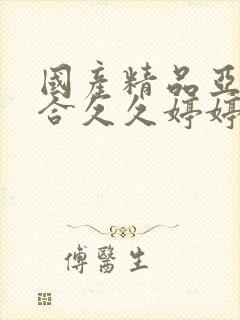 國產精品亞
合久久婷婷
傅醫生